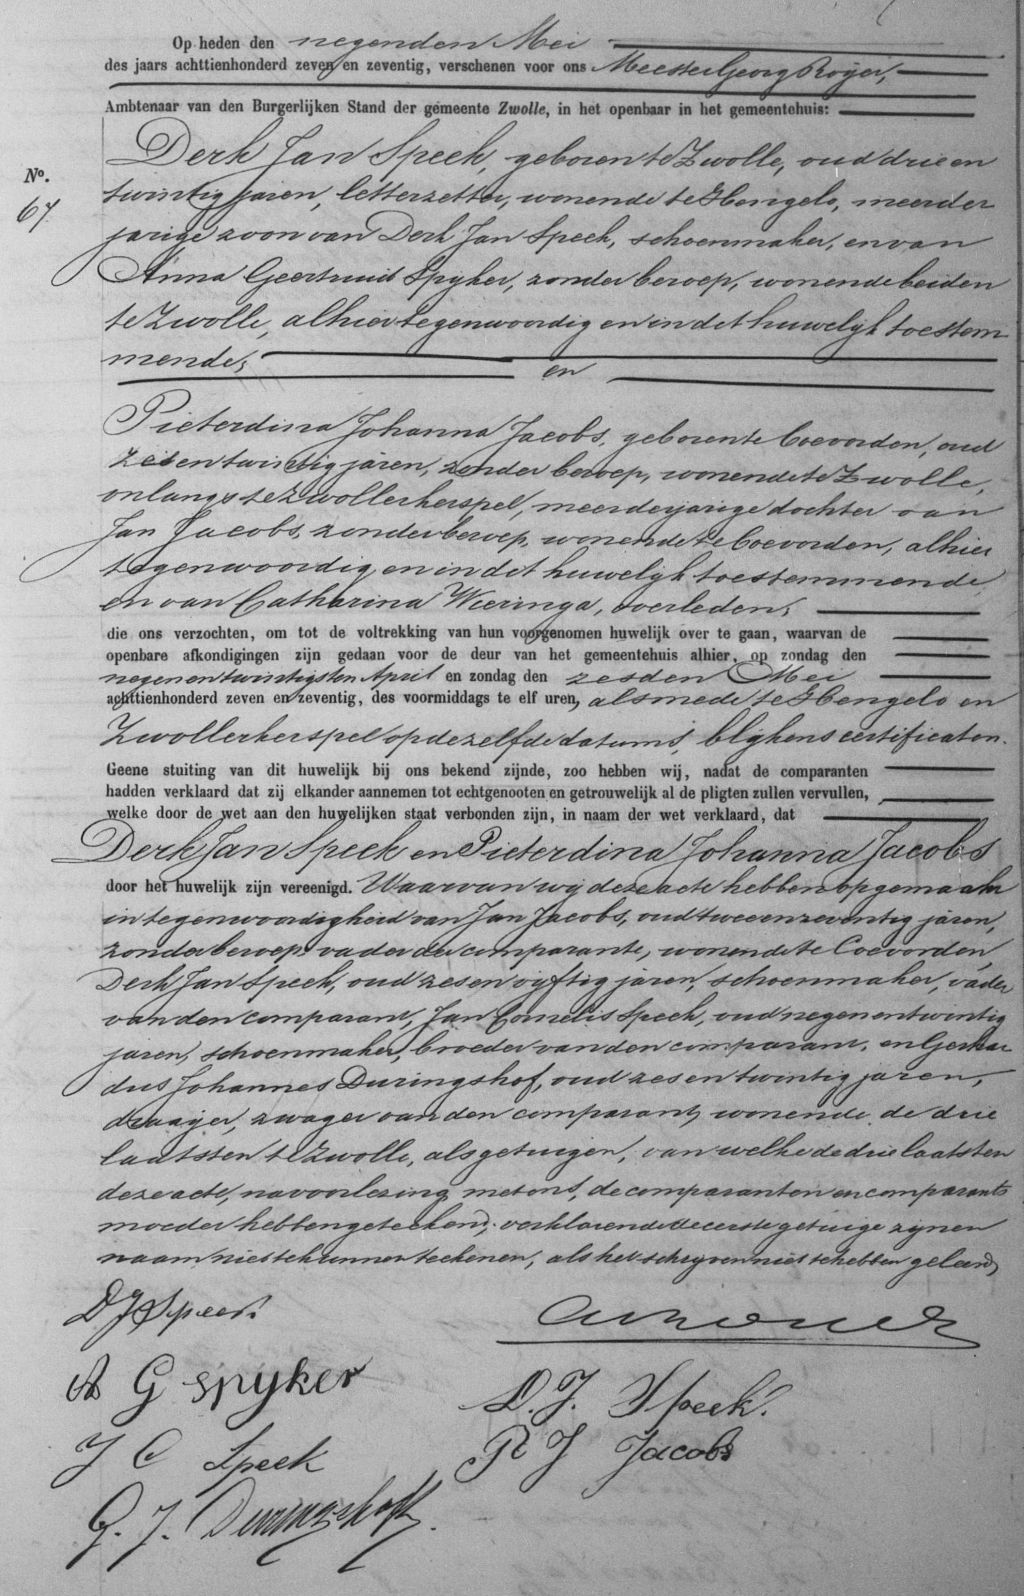 Op heden den negenden Mei
des jaars achttienhonderd zeven en zeventig, verschenen voor ons Meester Georg Royer,
Ambtenaar van den Burgerlijken Stand der gemeente Zwolle, in het openbaar in het gemeentehuis:
Derk Jan Speek, geboren te Zwolle, oud drie en
No.
67.
twintig jaren, letterzetter, wonende te Hengelo, meerder
jarige zoon van Derk Jan Speek, schoenmaker, en van
Anna Geertruid Spyker, zonder beroep, wonende beiden
te Zwolle, alhier tegenwoordig en in dit huwelijk toestem
mende;
en
Pieterdina Johanna Jacobs, geboren te Coevorden, oud
zes en twintig jaren, zonder beroep, wonende te Zwolle,
onlangs te Zwollerkerspel, meerderjarige dochter van
Jan Jacobs, zonder beroep, wonende te Coevorden, alhier
tegenwoordig en in dit huwelijk toestemmende,
en van Catharina Wieringa, overleden;
die ons verzochten, om tot de voltrekking van hun voorgenomen huwelijk over te gaan, waarvan de
openbare afkondigingen zijn gedaan voor de deur van het gemeentehuis alhier, op zondag den
negen en twintigsten April en zondag den zesden Mei
achttienhonderd zeven en zeventig, des voormiddags te elf uren, alsmede te Hengelo en
Zwollerkerspel op dezelfde datums, blijkens certificaten.
Geene stuiting van dit huwelijk bij ons bekend zijnde, zoo hebben wij, nadat de comparanten
hadden verklaard dat zij elkander aannemen tot echtgenooten en getrouwelijk al de pligten zullen vervullen,
welke door de wet aan den huwelijken staat verbonden zijn, in naam der wet verklaard, dat
Derk Jan Speek en Pieterdina Johanna Jacobs
door het huwelijk zijn vereenigd. Waarvan wij deze acte hebben opgemaakt
in tegenwoordigheid van Jan Jacobs, oud twee en zeventig jaren,
zonder beroep, vader der comparante, wonende te Coevorden,
Derk Jan Speek, oud zes en vijftig jaren, schoenmaker, vader
van den comparant, Jan Cornelis Speek, oud negen en twintig
jaren, schoenmaker, broeder van den comparant, en Gerhar
dus Johannes Duringshof, oud zes en twintig jaren,
draajer, zwager van den comparant, wonende de drie
laatsten te Zwolle, als getuigen, van welke de drie laatsten
deze acte, na voorlezing, met ons, de comparanten en comparants
moeder hebben geteekend, verklarende de eerste getuige zijnen
naam niet te kunnen teekenen, als het schrijven niet te hebben geleerd,
D J Speek
A G spyker
D. J. Speek.
J C Speek
P J Jacobs
G. J. Duringshoff.